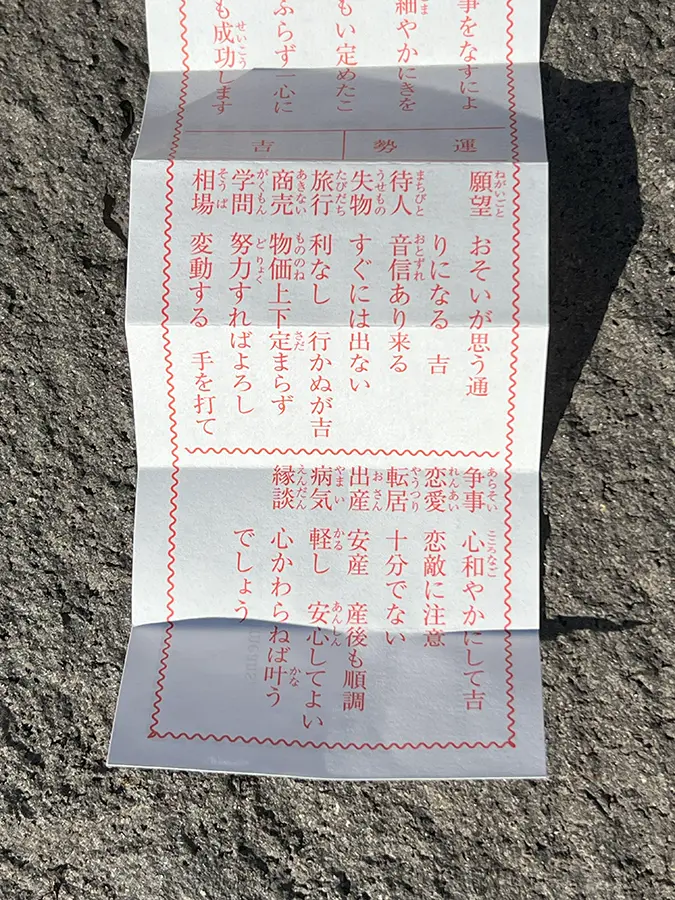 事をなすによ
細やかにきを
もい定めたこ
ふらず一心に
も成功します
運勢 吉
願望 おそいが思う通
りになる 吉
待人 音信あり来る
失物 すぐには出ない
旅行 利なし 行かぬが吉
商売 物価上下定まらず
学問 努力すればよろし
相場 変動する 手を打て
争事 心和やかにして吉
恋愛 恋敵に注意
転居 十分でない
出産 安産 産後も順調
病気 軽し 安心してよい
縁談 心かわらねば叶う
でしょう